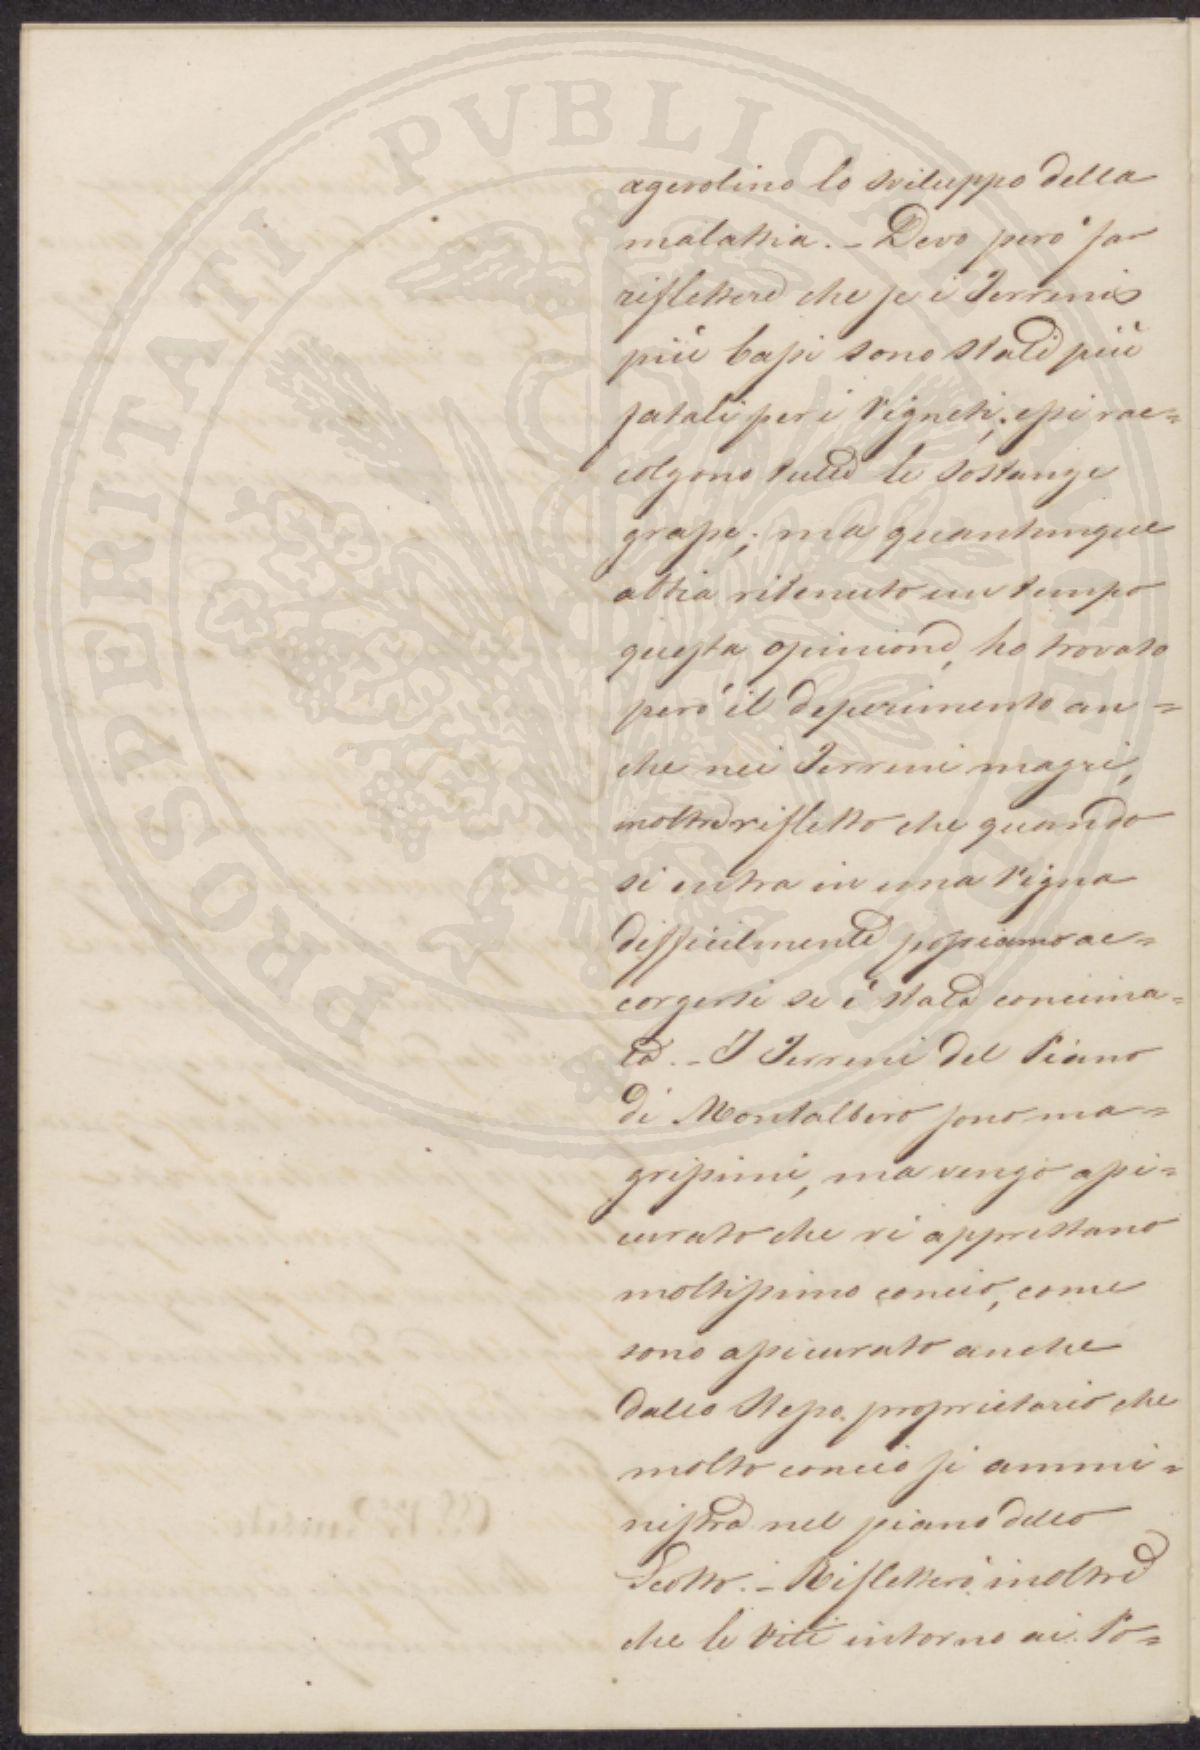 agevolino lo sviluppo della
malattia. – Devo però far
riflettere che se i Terreni
più bassi sono stati più
fatali per i Vigneti, essi rac=
colgono tutte le sostanze
grasse; ma quantunque
abbia ritenuto un tempo
questa opinione, ho trovato
però il deperimento an=
che nei Terreni magri,
inoltre rifletto che quando
si entra in una Vigna
difficilmente possiamo ac=
corgersi se è stata concima=
ta. – I Terreni del Piano
di Montalbero sono ma=
grissimi, ma vengo assi=
curato che vi apprestano
moltissimo concio, come
sono assicurato anche
dallo stesso proprietario che
molto concio si ammi=
nistra nel piano dello
Scotto. – Rifletterò inoltre
che le Viti intorno ai Po=
PROSPERITATI PVBLICAE